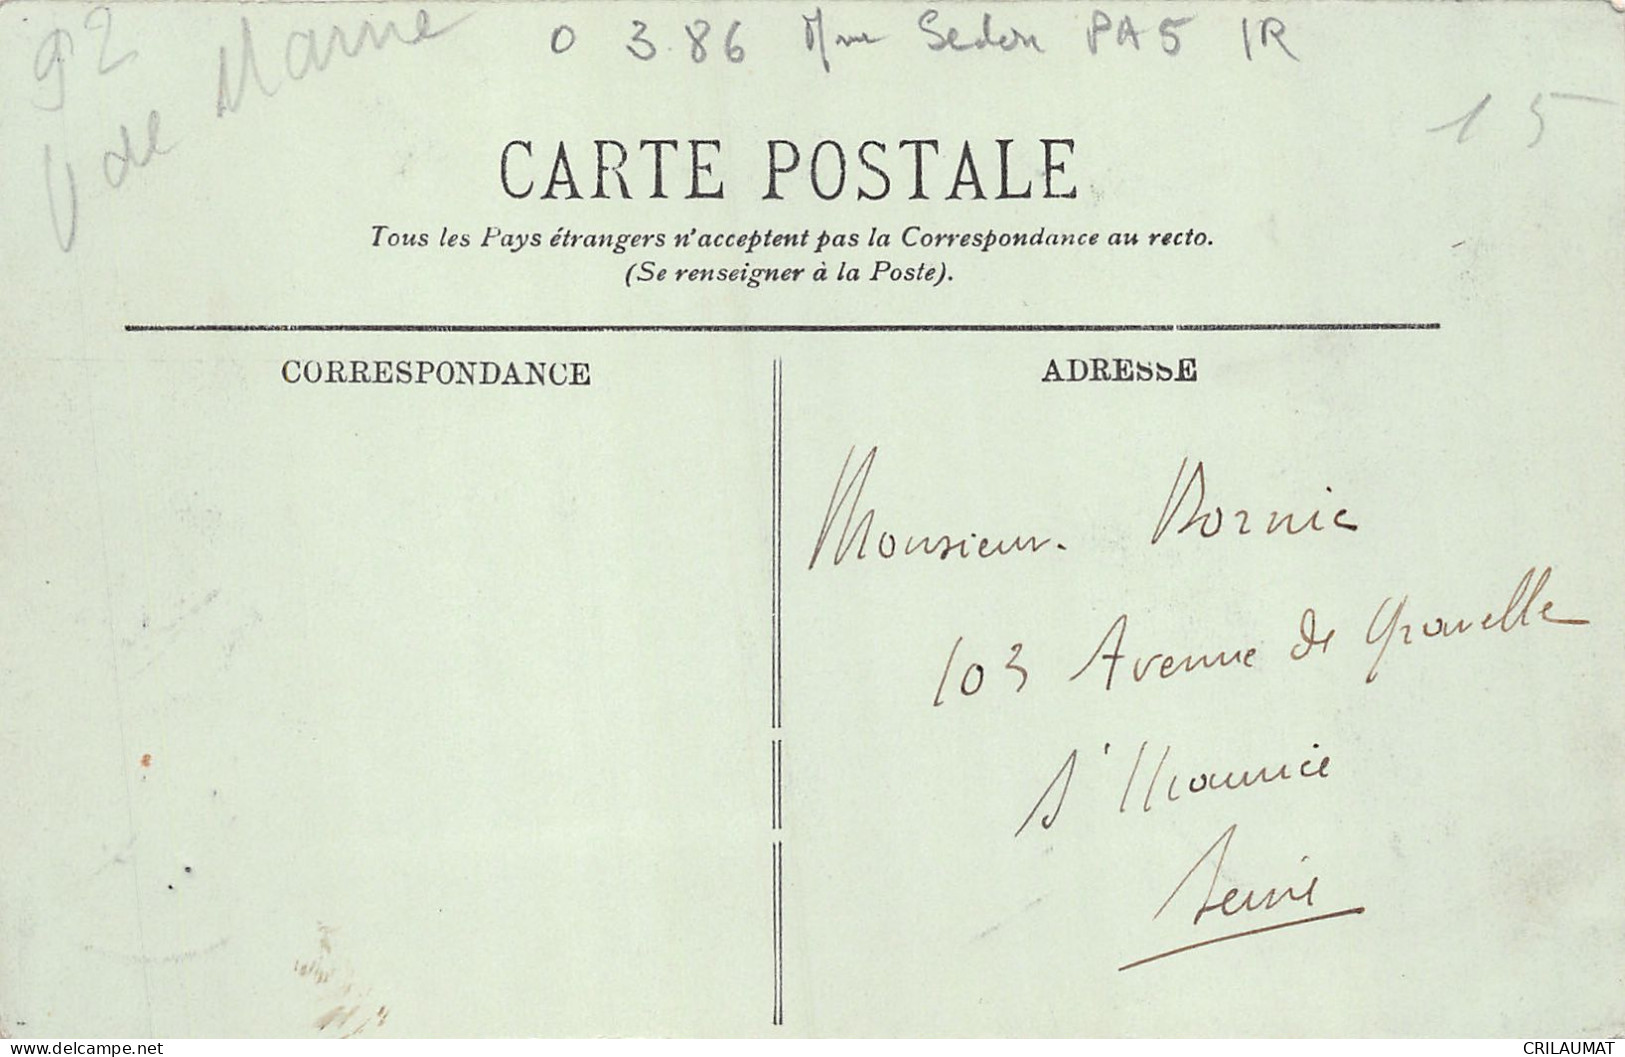 92
V de Marne
0 3.86 Mme Sedon PA5 IR
15
CARTE POSTALE
Tous les Pays étrangers n'acceptent pas la Correspondance au recto.
(Se renseigner à la Poste).
CORRESPONDANCE
ADRESSE
Monsieur Bornic
103 Avenue de Gravelle
St Maurice
Seine
www.delcampe.net
CRILAUMAT